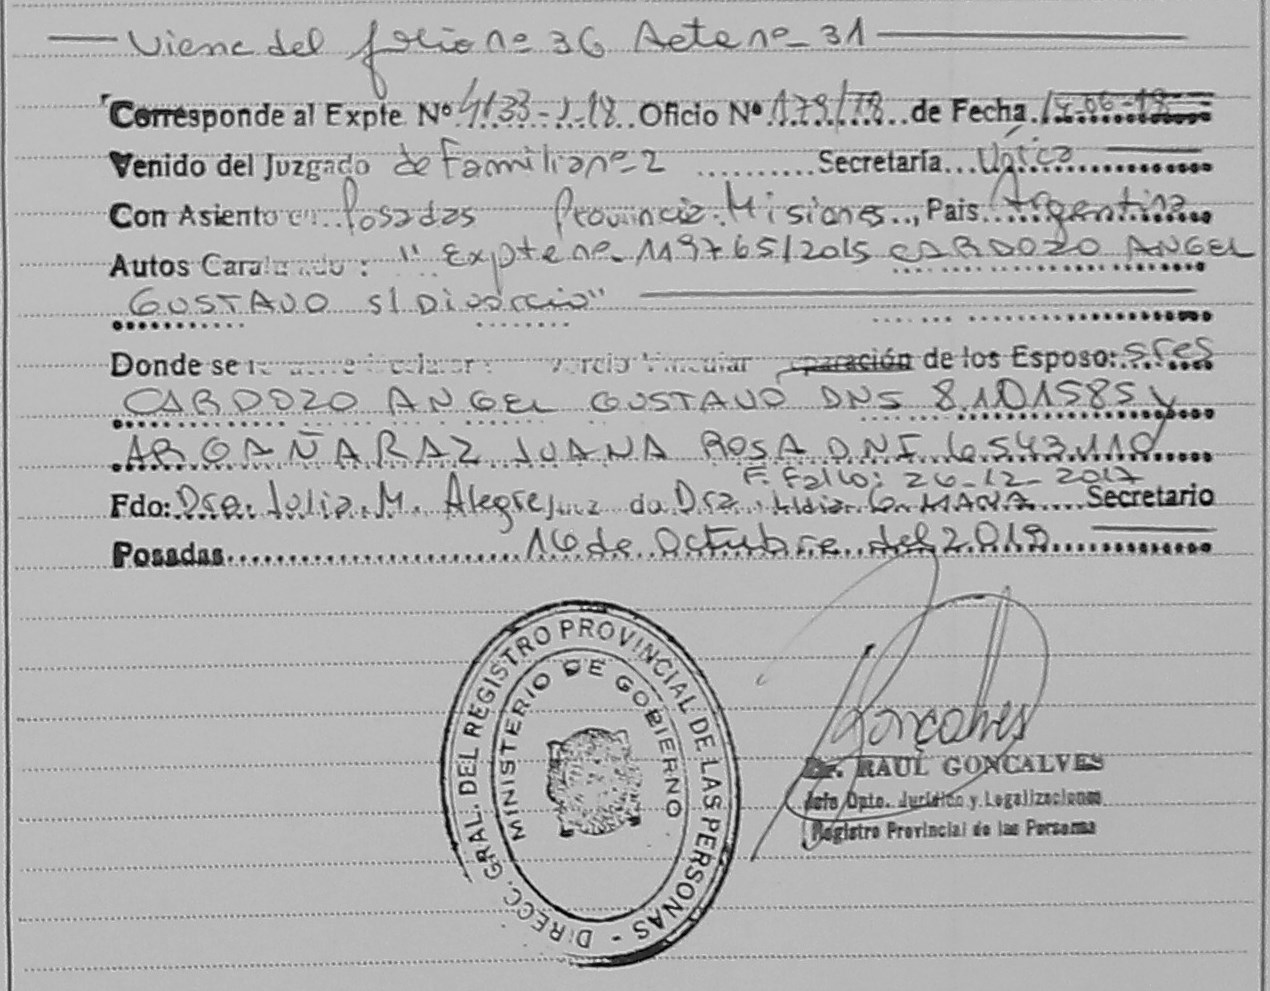 Viene del folio nº 36 Acta nº 31
Corresponde al Expte Nº 4133-J-18 Oficio Nº 179/18 de Fecha
Venido del Juzgado de Familia nº 2 Secretaría Única
Con Asiento en Posadas Provincia Misiones, País Argentina
Autos Caratulado: "Expte nº 119765/2015 CARDOZO ANGEL
GUSTAVO s/ Divorcio"
Donde se Vincular separación de los Esposo: sres
CARDOZO ANGEL GUSTAVO DNI 8.101585 y
ARGAÑARAZ JUANA ROSA DNI 6.543.110
F. Fallo: 26-12-2017
Fdo: Dra. Julia M. Alegre Juez Dra. Lidia G. Secretario
Posadas 16 de Octubre del 2.018
DIRECC. GRAL. DEL REGISTRO PROVINCIAL DE LAS PERSONAS -
MINISTERIO DE GOBIERNO
Gonçalves
Dr. RAUL GONCALVES
Jefe Dpto. Jurídico y Legalizaciones
Registro Provincial de las Persona